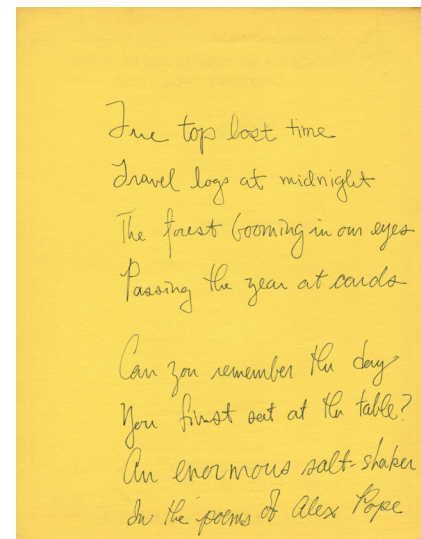 top lost time
Travel logs at midnight
The forest booming in our eyes
Passing the year at cards
Can you remember the day
You first sat at the table?
An enormous salt-shaker
In the poems of Alex Pope